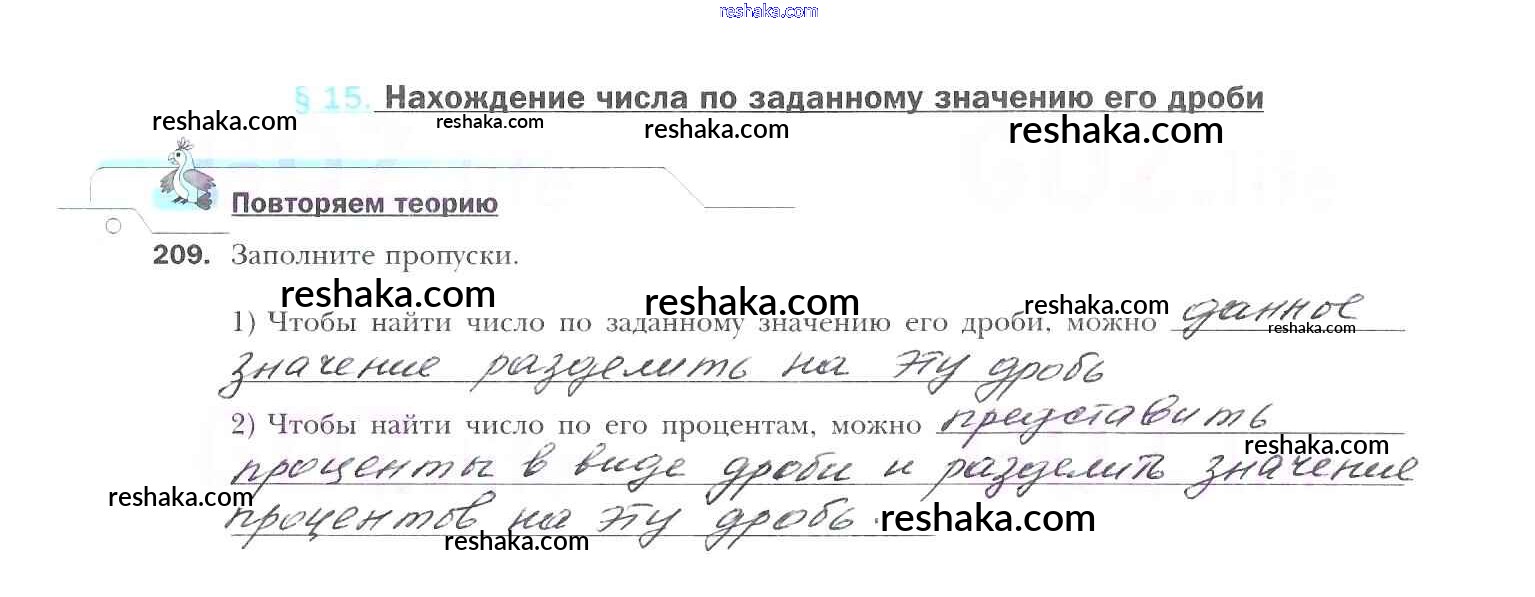 reshaka.com
§ 15. Нахождение числа по заданному значению его дроби
reshaka.com reshaka.com reshaka.com reshaka.com
Повторяем теорию
209. Заполните пропуски.
reshaka.com reshaka.com reshaka.com
1) Чтобы найти число по заданному значению его дроби, можно данное
reshaka.com
значение разделить на эту дробь
2) Чтобы найти число по его процентам, можно представить
reshaka.com
проценты в виде дроби и разделить значение
reshaka.com
процентов на эту дробь.
reshaka.com
reshaka.com